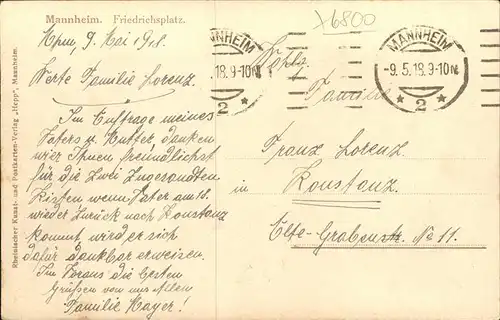 Mannheim. Friedrichsplatz.
x6800
Mhm, 9. Mai 1918.
Werte Familie Lorenz.
Im Auftrage meines
Vaters u. Mutter, danken
wier Ihnen freundlichst
für die zwei Zugesandten
Kisten wenn Vater am 18.
wieder zurück nach Konstanz
kommt wird er sich
dafür dankbar erweisen.
Im Voraus die besten
Grüßen von uns Allen
Familie Mayer!
Rheinischer Kunst- und Postkarten-Verlag „Hepp“, Mannheim.
MANNHEIM
.18.9-10N
2
MANNHEIM
-9.5.18.9-10N
* 2 *
Wohlg.
Familie
Franz Lorenz
in Konstanz.
Alte-Grabenstr. No 11.